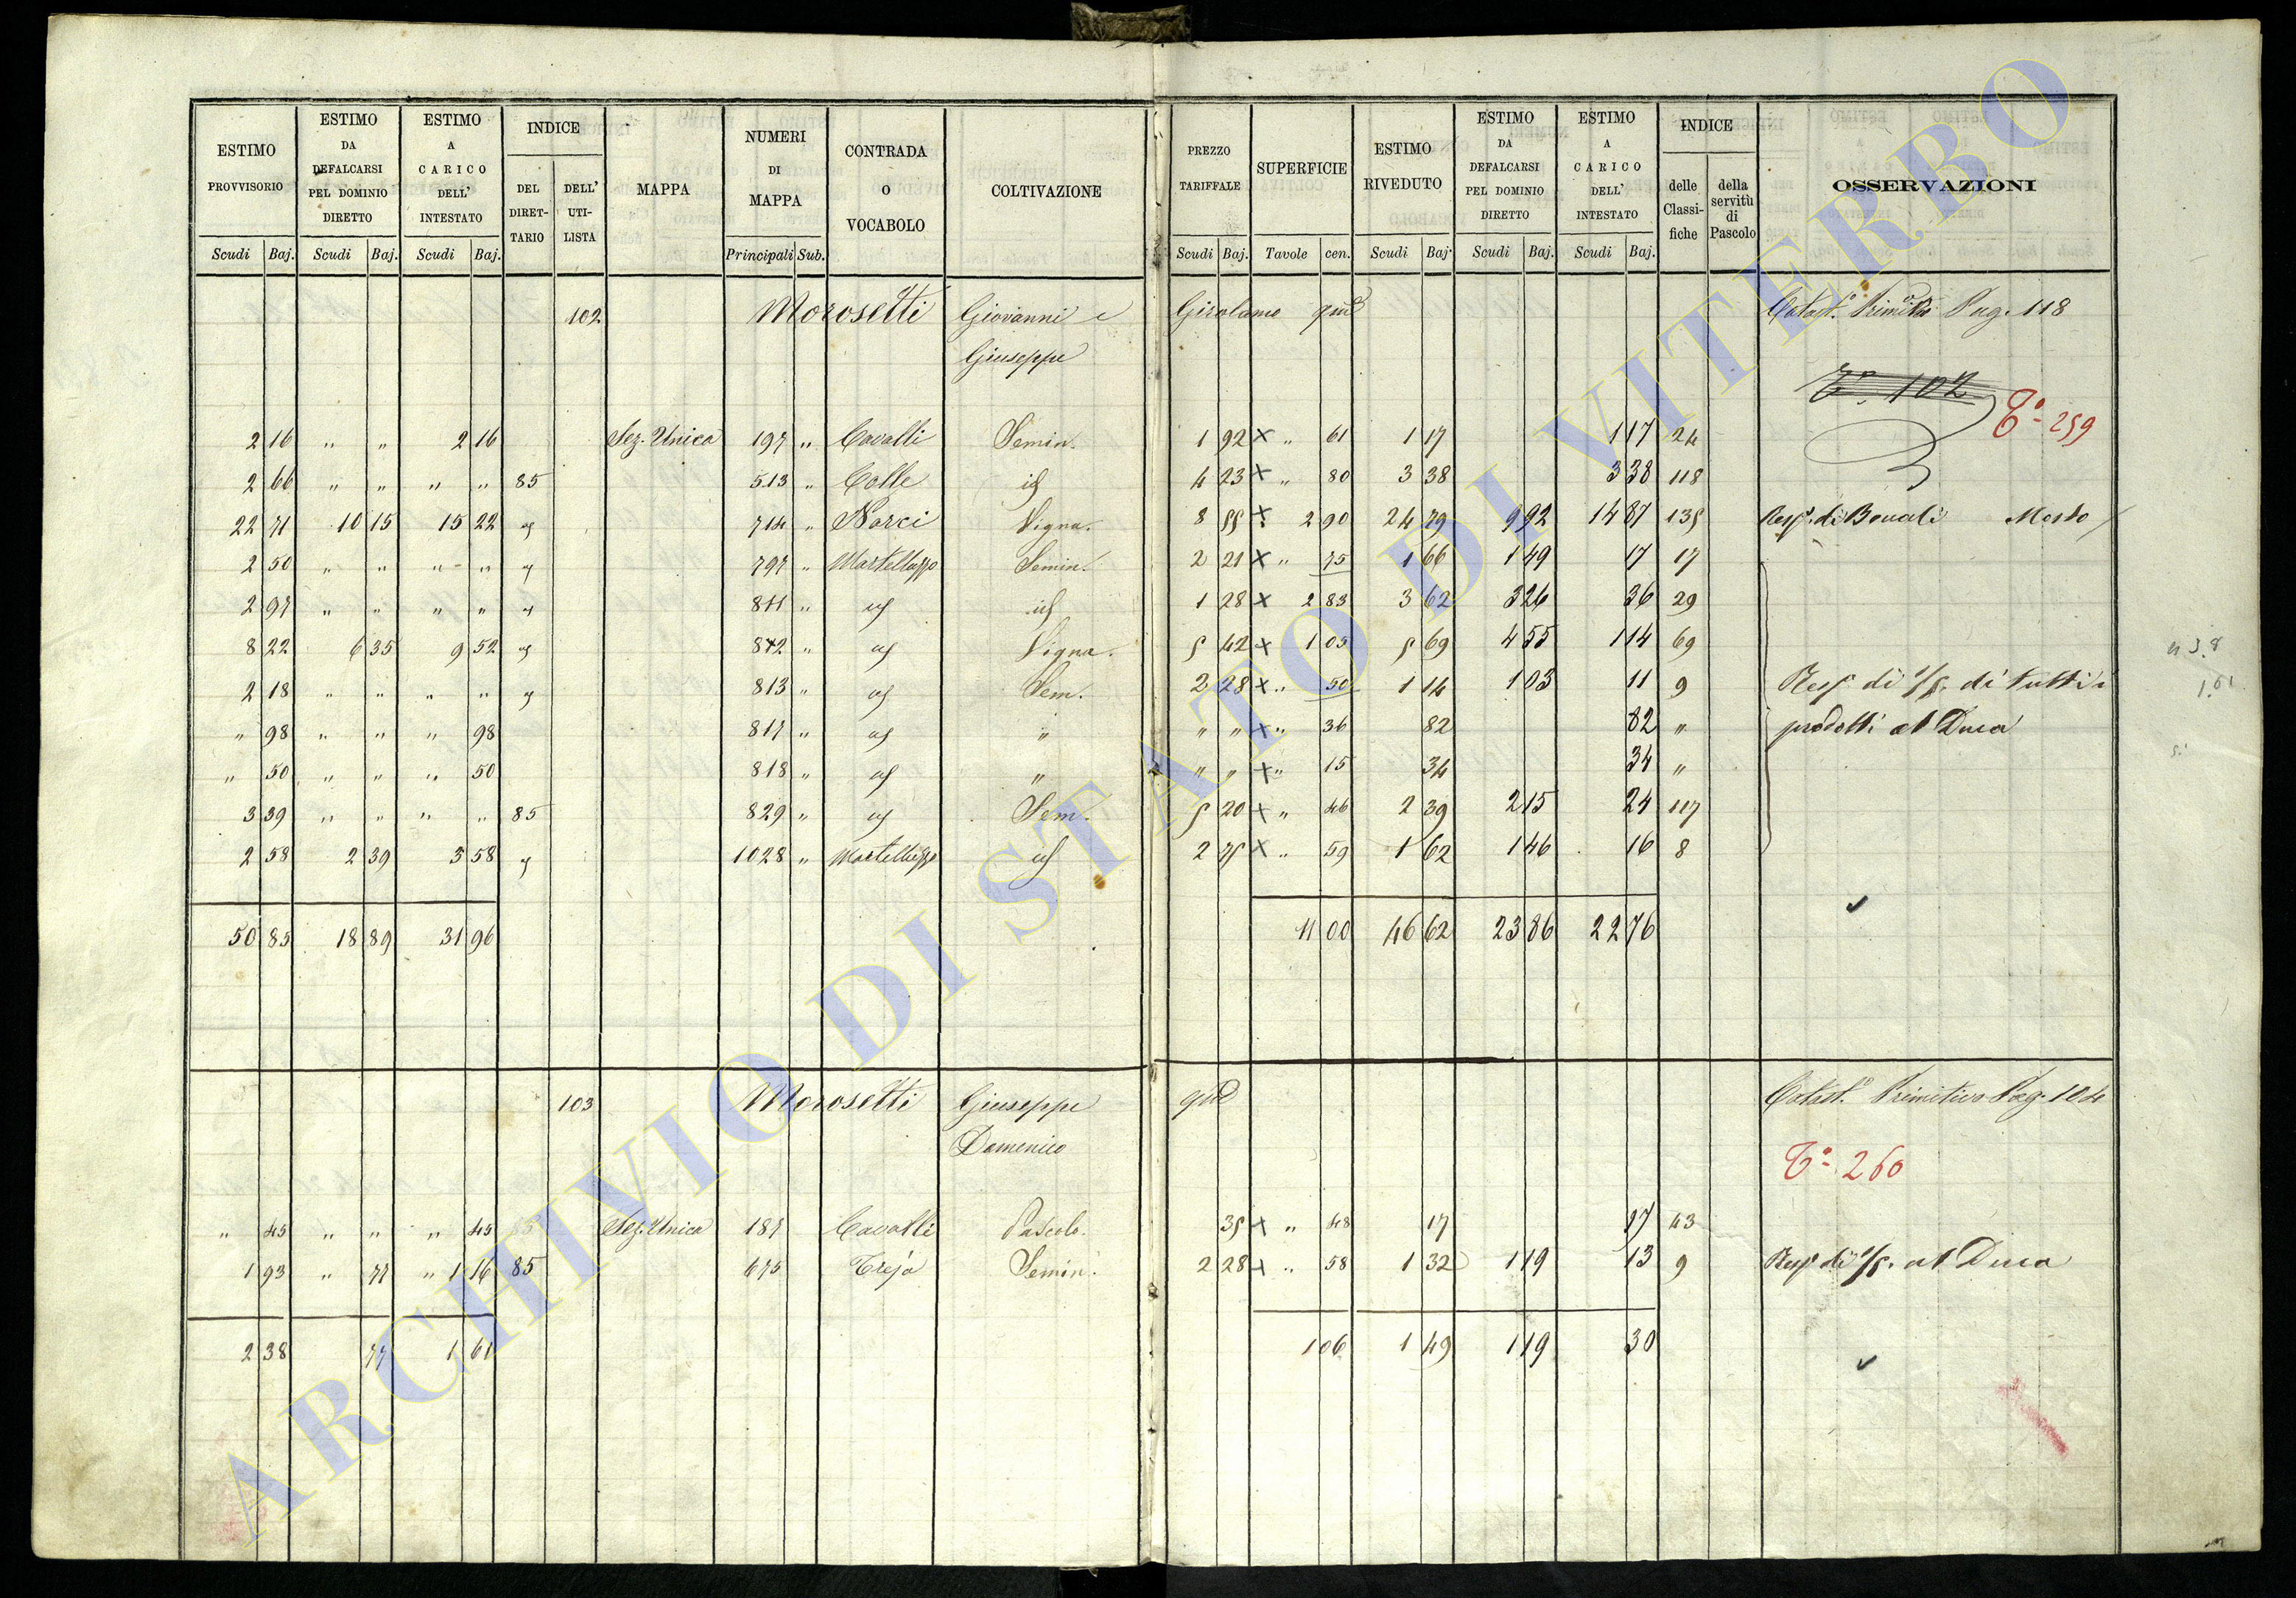 ESTIMO PROVVISORIO Scudi Baj.
ESTIMO DA DEFALCARSI PEL DOMINIO DIRETTO Scudi Baj.
ESTIMO A CARICO DELL' INTESTATO Scudi Baj.
INDICE DEL DIRETTARIO DELL' UTILISTA
MAPPA
NUMERI DI MAPPA Principali Sub.
CONTRADA O VOCABOLO
COLTIVAZIONE
PREZZO TARIFFALE Scudi Baj.
SUPERFICIE Tavole cen.
ESTIMO RIVEDUTO Scudi Baj.
ESTIMO DA DEFALCARSI PEL DOMINIO DIRETTO Scudi Baj.
ESTIMO A CARICO DELL' INTESTATO Scudi Baj.
INDICE delle Classifiche della servitù di Pascolo
OSSERVAZIONI
102 Morosetti Giovanni e Girolamo Catast. Pag. 118
Giuseppe
Tº. 102
Tº- 259
2 16 " " 2 16 Sez. Unica 197 " Cavalli Semin. 1 92 x " 61 1 17 1 17 24
2 66 " " " " 85 513 " Colle id 4 23 x " 80 3 38 3 38 118
22 71 10 15 15 22 id 714 " Norci Vigna. 8 55 x 2 90 24 79 9 92 14 87 135 Resp. di Mosto
2 50 " " " " id 797 " Martelluzzo Semin. 2 21 x " 75 1 66 1 49 17 17
2 97 " " " " id 811 " id id 1 28 x 2 83 3 62 3 26 36 29
8 22 6 35 9 52 id 812 " id Vigna. 5 42 x 1 05 5 69 4 55 1 14 69
2 18 " " " " id 813 " id Sem. 2 28 x " 50 1 14 1 03 11 9 Resp. di 1/5. di tutti i
" 98 " " " 98 817 " id " " " x " 36 82 82 " prodotti al Duca
" 50 " " " 50 818 " id " " " x " 15 34 34 "
3 39 " " " " 85 829 " id Sem. 5 20 x " 46 2 39 2 15 24 117
2 58 2 39 3 58 id 1028 " Martelluzzo id 2 75 x " 59 1 62 1 46 16 8
50 85 18 89 31 96 11 00 46 62 23 86 22 76
103 Morosetti Giuseppe Catast. Primitivo Pag. 104
Domenico
Tº- 260
" 45 " " " 45 Sez. Unica 187 Cavalli Pascolo. 35 x " 48 17 17 43
1 93 " 77 " 1 16 85 675 Treja Semin. 2 28 x " 58 1 32 1 19 13 9 Resp. di 1/5. al Duca
2 38 77 1 61 1 06 1 49 1 19 30
ARCHIVIO DI STATO DI VITERBO